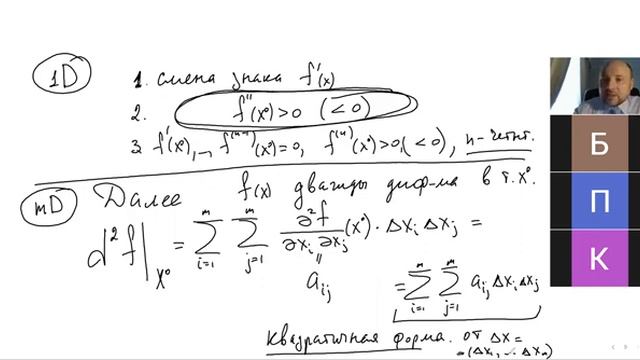 1D
1. смена знака f'(x)
2. f''(x⁰)>0 (<0)
3. f'(x⁰),..., f⁽ⁿ⁻¹⁾(x⁰)=0, f⁽ⁿ⁾(x⁰)>0,(<0), n-четн.
mD Далее f(x) дважды диф-ма в т. x⁰.
d²f|x⁰ = ∑ᵢ₌₁ᵐ ∑ⱼ₌₁ᵐ ∂²f/∂xᵢ∂xⱼ (x⁰) · Δxᵢ Δxⱼ =
|| aᵢⱼ
= ∑ᵢ₌₁ᵐ ∑ⱼ₌₁ᵐ aᵢⱼ Δxᵢ Δxⱼ
Квадратичная форма. от Δx =
=(Δx₁, ... Δxₘ)
Б
П
К